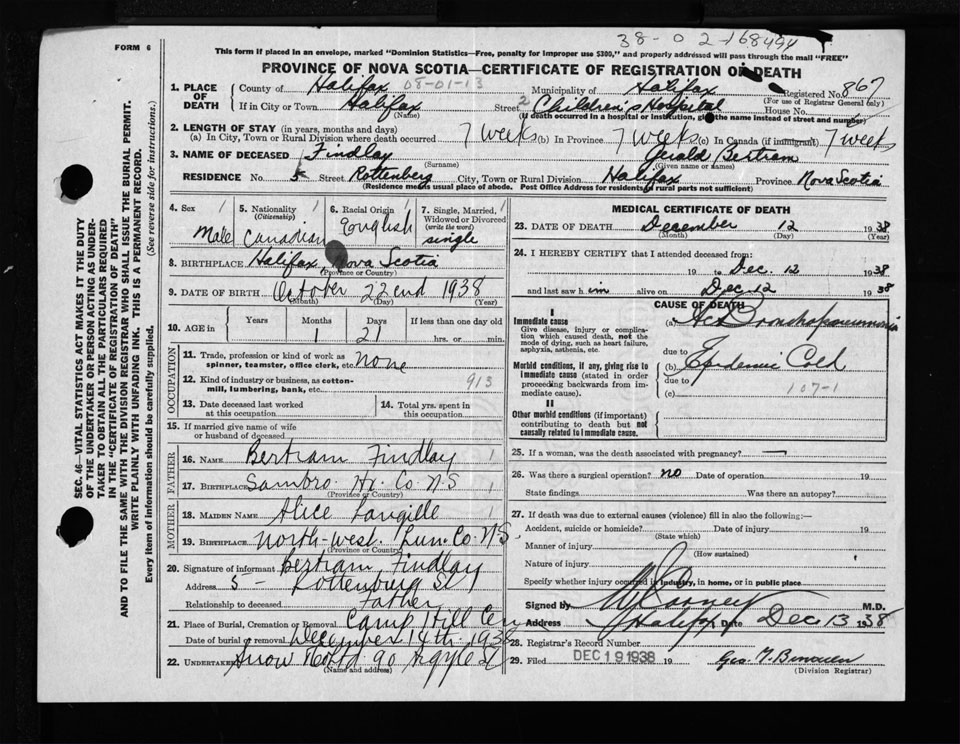 38-02-168494
FORM 6
This form if placed in an envelope, marked "Dominion Statistics—Free, penalty for improper use $300," and properly addressed will pass through the mail "FREE"
PROVINCE OF NOVA SCOTIA—CERTIFICATE OF REGISTRATION OF DEATH
1. PLACE OF DEATH
County of Halifax 08-01-13 Municipality of Halifax Registered No. 867
(For use of Registrar General only)
If in City or Town Halifax Street 2 Children's Hospital House No.
(Name) (If death occurred in a hospital or institution, give the name instead of street and number)
2. LENGTH OF STAY (in years, months and days)
(a) In City, Town or Rural Division where death occurred 7 weeks (b) In Province 7 weeks (c) In Canada (if immigrant) 7 weeks
3. NAME OF DECEASED Findlay Gerald Bertram
(Surname) (Given name or names)
RESIDENCE No. 5 Street Rottenberg City, Town or Rural Division Halifax Province Nova Scotia
(Residence means usual place of abode. Post Office Address for residents of rural parts not sufficient)
4. Sex 1 Male
5. Nationality 1 (Citizenship) Canadian
6. Racial Origin 1 English
7. Single, Married, 1 Widowed or Divorced (write the word) single
8. BIRTHPLACE Halifax, Nova Scotia
(Province or Country)
9. DATE OF BIRTH October 22end 1938
(Month) (Day) (Year)
10. AGE in Years Months 1 Days 21 If less than one day old hrs. or min.
OCCUPATION
11. Trade, profession or kind of work as spinner, teamster, office clerk, etc. none
12. Kind of industry or business, as cotton-mill, lumbering, bank, etc. 913
13. Date deceased last worked at this occupation
14. Total yrs. spent in this occupation
15. If married give name of wife or husband of deceased
FATHER
16. NAME Bertram Findlay 1
17. BIRTHPLACE Sambro Hx. Co. N S 1
(Province or Country)
MOTHER
18. MAIDEN NAME Alice Langille 1
19. BIRTHPLACE North-west. Lun. Co. N.S.
(Province or Country)
20. Signature of informant Bertram Findlay
Address 5 - Rottenburg St
Relationship to deceased Father
21. Place of Burial, Cremation or Removal Camp Hill Cem
Date of burial or removal December 14th 1938
22. UNDERTAKER Snow 90 Argyle St
(Name and address)
MEDICAL CERTIFICATE OF DEATH
23. DATE OF DEATH December 12 1938
(Month) (Day) (Year)
24. I HEREBY CERTIFY that I attended deceased from:
19 to Dec. 12 1938
and last saw him alive on Dec 12 1938
CAUSE OF DEATH
I
Immediate cause
Give disease, injury or complication which caused death, not the mode of dying, such as heart failure, asphyxia, asthenia, etc.
(a) Bronchopneumonia
due to
Morbid conditions, if any, giving rise to immediate cause (stated in order proceeding backwards from immediate cause).
(b) Epidemic Cold
due to
(c) 107-1
II
Other morbid conditions (if important) contributing to death but not causally related to immediate cause.
25. If a woman, was the death associated with pregnancy? —
26. Was there a surgical operation? no Date of operation 19
State findings Was there an autopsy?
27. If death was due to external causes (violence) fill in also the following:—
Accident, suicide or homicide? Date of injury 19
(State which)
Manner of injury
(How sustained)
Nature of injury
Specify whether injury occurred in industry, in home, or in public place
Signed by M.D.
Address Halifax Date Dec 13 1938
28. Registrar's Record Number
29. Filed DEC 19 1938 19 Geo.
(Division Registrar)
SEC. 46—VITAL STATISTICS ACT MAKES IT THE DUTY
OF THE UNDERTAKER OR PERSON ACTING AS UNDER-
TAKER TO OBTAIN ALL THE PARTICULARS REQUIRED
IN THE "CERTIFICATE OF REGISTRATION OF DEATH"
AND TO FILE THE SAME WITH THE DIVISION REGISTRAR WHO SHALL ISSUE THE BURIAL PERMIT.
WRITE PLAINLY WITH UNFADING INK. THIS IS A PERMANENT RECORD.
Every item of information should be carefully supplied. (See reverse side for instructions.)